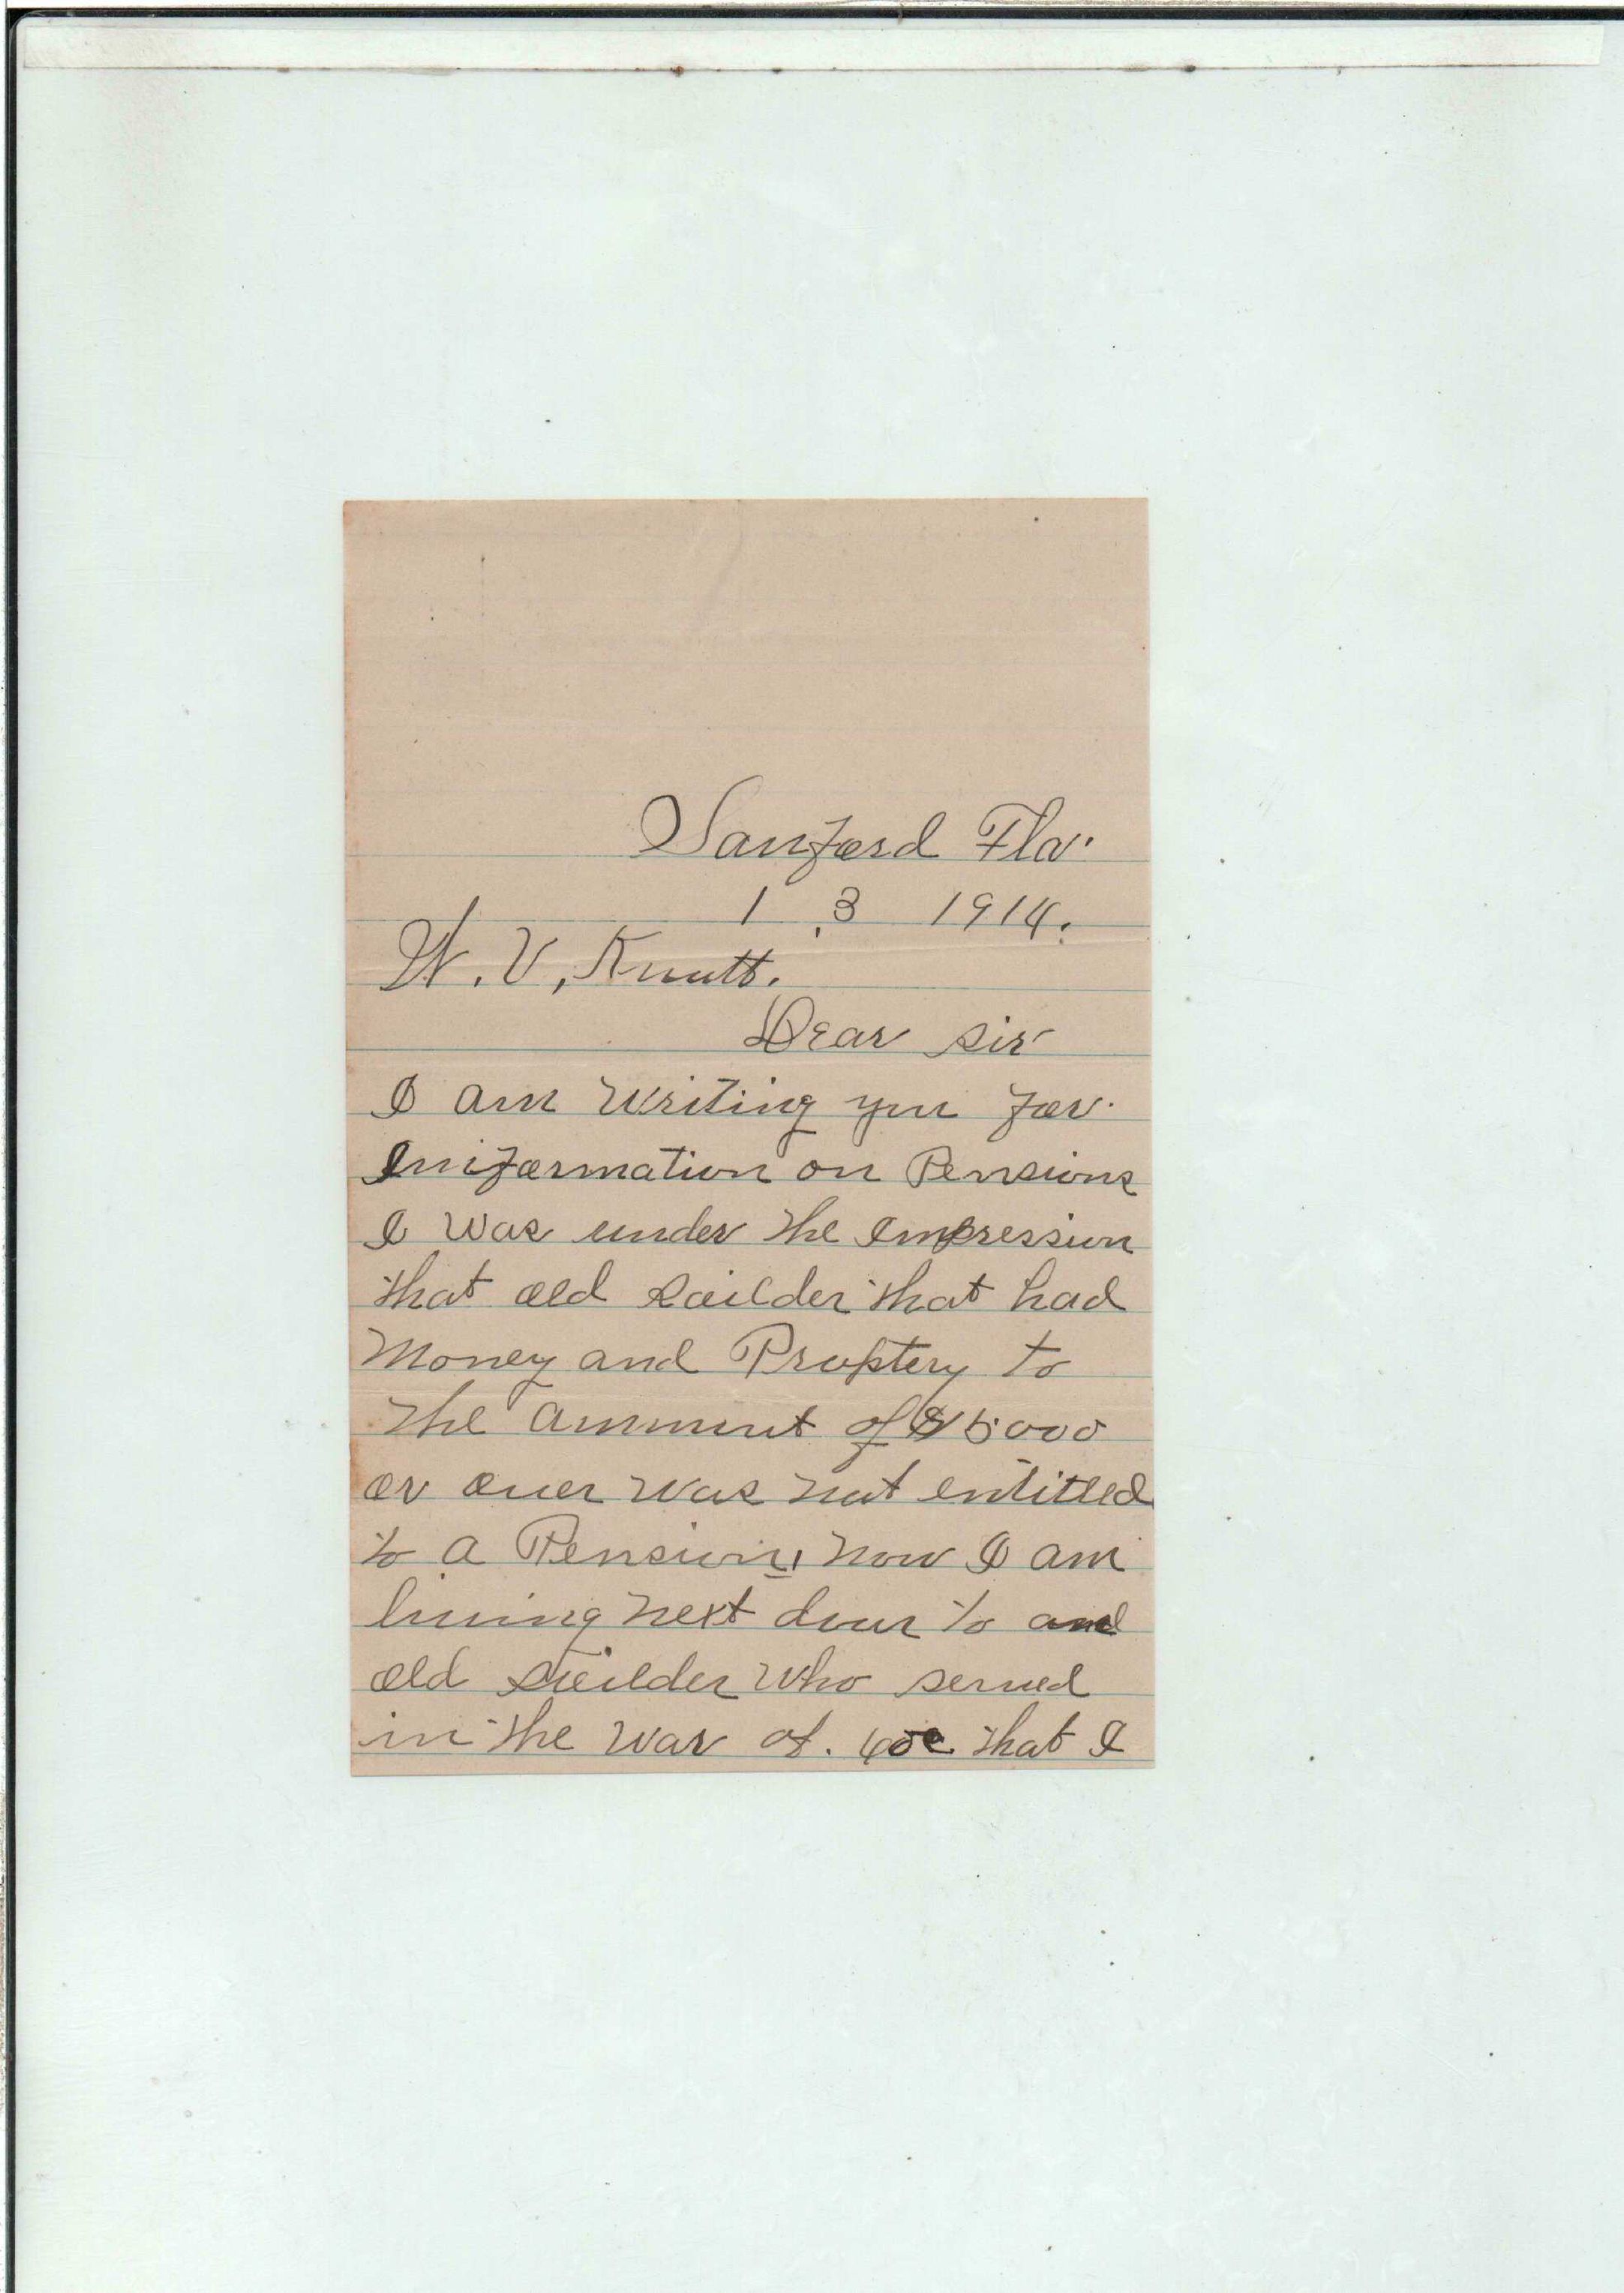 Sanford Fla.
1, 3 1914.
W. V, Knott.
Dear sir
I am writing you for
Iniformation on Pensions
I was under the Impression
that old soilder that had
Money and Proptery to
the amount of $5000
or over was not entitled
to a Pension, now I am
living next door to and
old soilder who served
in the war of. that I